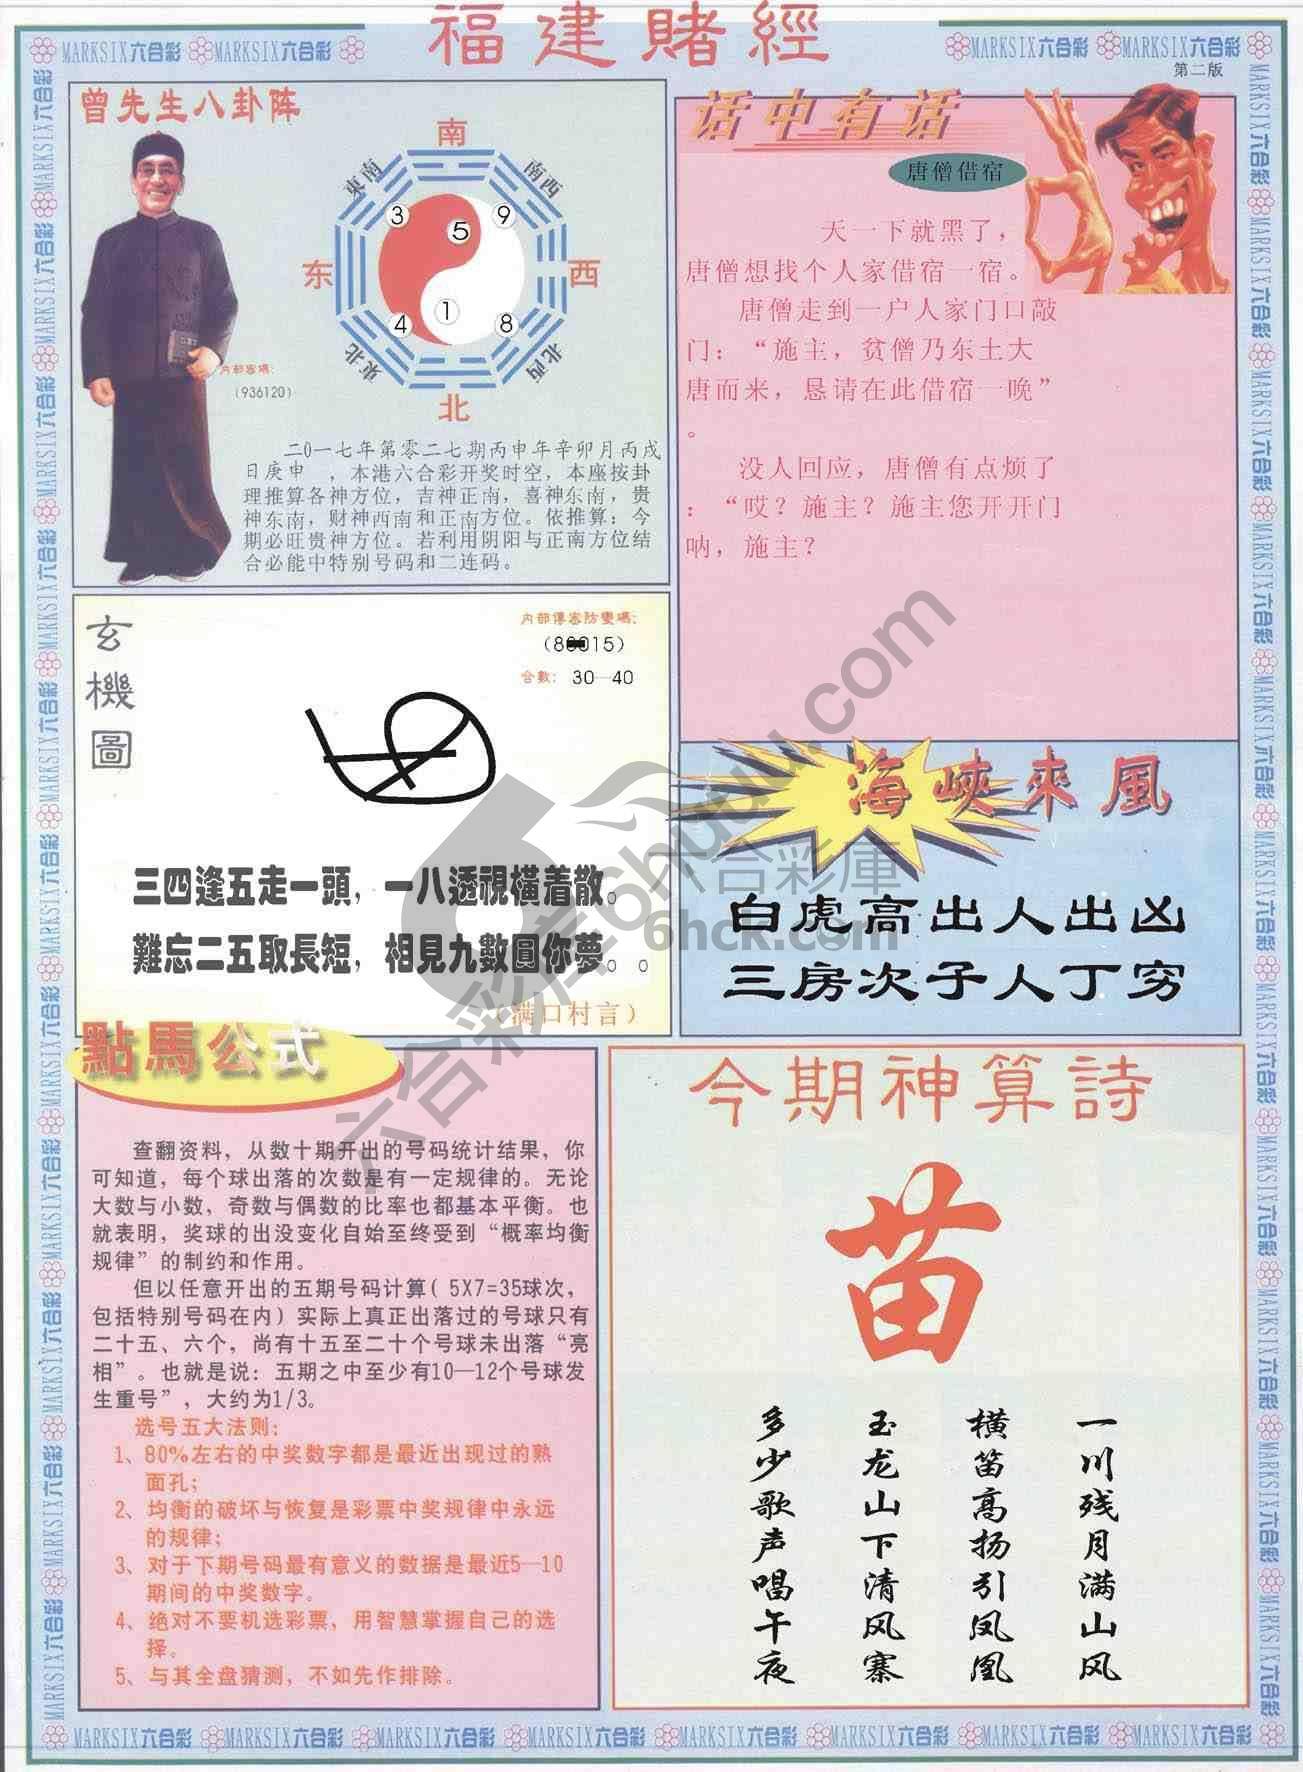 福建賭經
MARKSIX六合彩 MARKSIX六合彩 MARKSIX六合彩 MARKSIX六合彩
第二版
曾先生八卦阵
南
東南
南西
3
5
9
东
西
4
1
8
東北
北西
北
内部密碼:
(936120)
二0一七年第零二七期丙申年辛卯月丙戌
日庚申，本港六合彩开奖时空，本座按卦
理推算各神方位，吉神正南，喜神东南，贵
神东南，财神西南和正南方位。依推算：今
期必旺贵神方位。若利用阴阳与正南方位结
合必能中特别号码和二连码。
话中有话
唐僧借宿
天一下就黑了，
唐僧想找个人家借宿一宿。
唐僧走到一户人家门口敲
门：“施主，贫僧乃东土大
唐而来，恳请在此借宿一晚”
。
没人回应，唐僧有点烦了
：“哎？施主？施主您开开门
呐，施主？
玄機圖
内部傳密防變碼:
合數: 30—40
三四逢五走一頭，一八透視橫着散。
難忘二五取長短，相見九數圓你夢。。
（满口村言）
海峽來風
白虎高出人出凶
三房次子人丁穷
點馬公式
查翻资料，从数十期开出的号码统计结果，你
可知道，每个球出落的次数是有一定规律的。无论
大数与小数，奇数与偶数的比率也都基本平衡。也
就表明，奖球的出没变化自始至终受到“概率均衡
规律”的制约和作用。
但以任意开出的五期号码计算( 5X7=35球次，
包括特别号码在内) 实际上真正出落过的号球只有
二十五、六个，尚有十五至二十个号球未出落“亮
相”。也就是说：五期之中至少有10—12个号球发
生重号”，大约为1/3。
选号五大法则：
1、80%左右的中奖数字都是最近出现过的熟
面孔；
2、均衡的破坏与恢复是彩票中奖规律中永远
的规律；
3、对于下期号码最有意义的数据是最近5—10
期间的中奖数字。
4、绝对不要机选彩票，用智慧掌握自己的选
择。
5、与其全盘猜测，不如先作排除。
今期神算詩
苗
一川残月满山风
横笛高扬引凤凰
玉龙山下清风寨
多少歌声唱午夜
六合彩库6hquu.com
六合彩庫
6hck.com
MARKSIX六合彩 MARKSIX六合彩 MARKSIX六合彩 MARKSIX六合彩 MARKSIX六合彩 MARKSIX六合彩 MARKSIX六合彩 MARKSIX六合彩